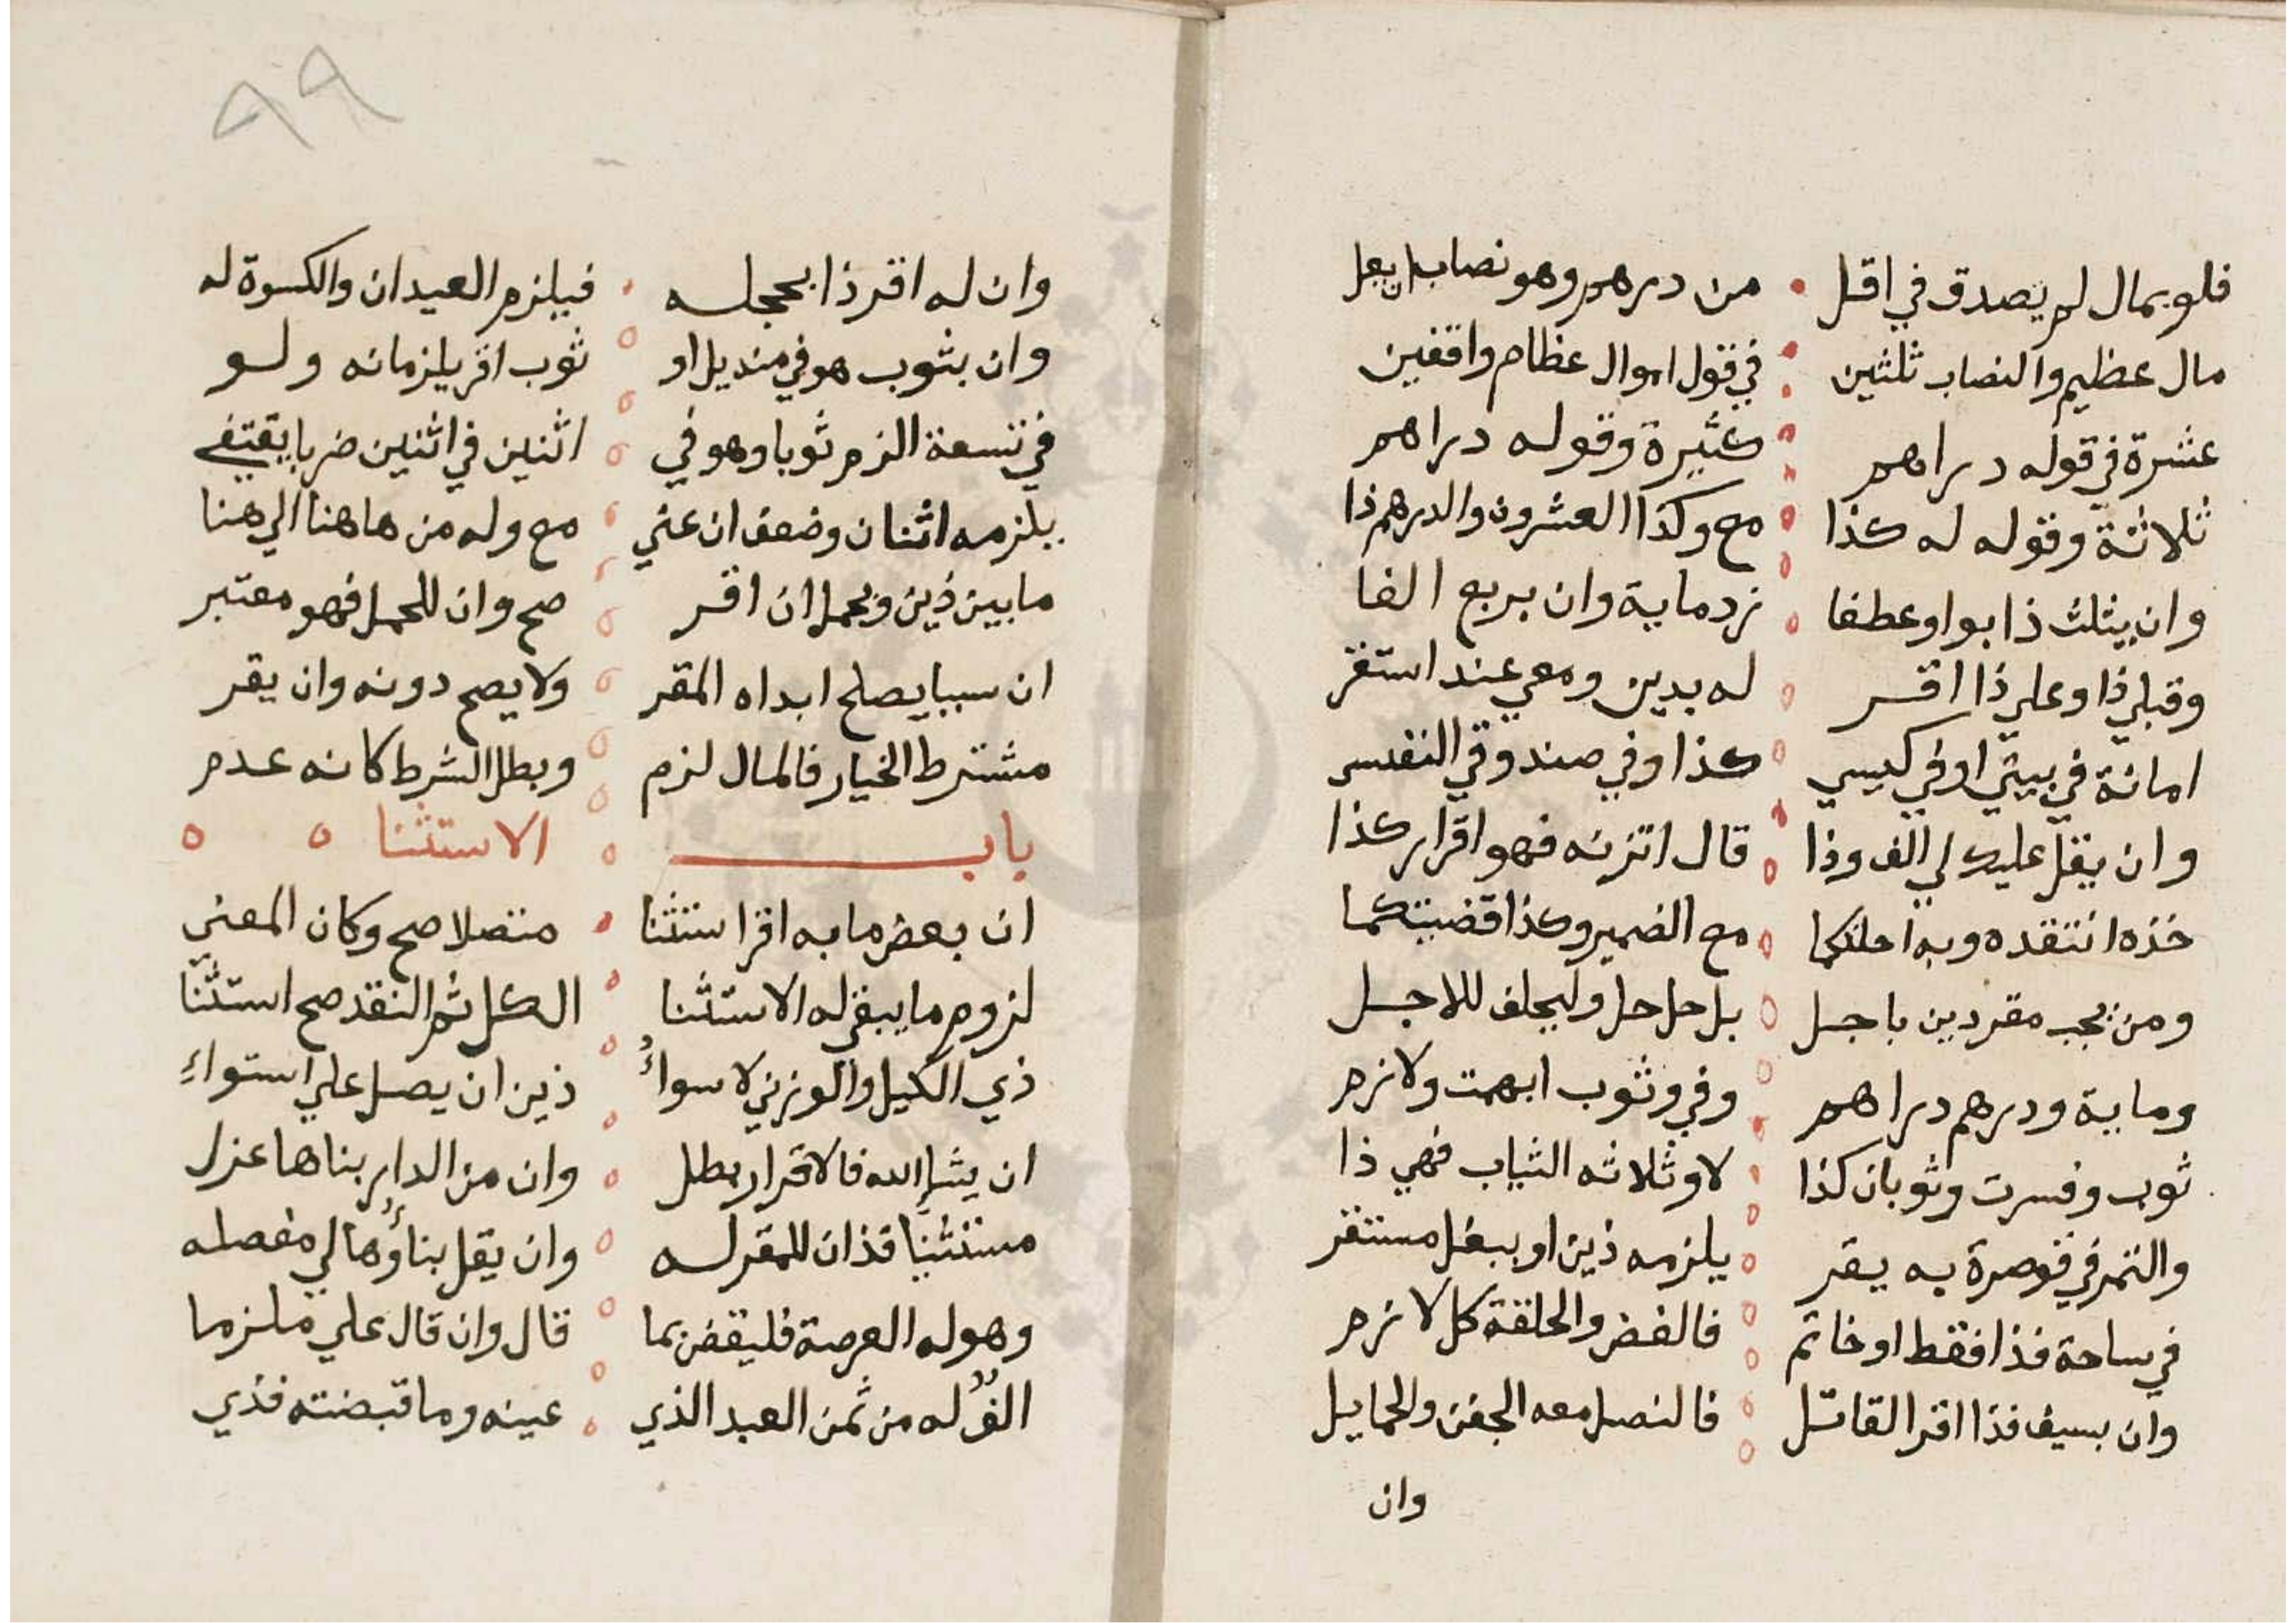 فلو بمال لم يصدق في اقل من درهم وهو نصاب ان يقل
مال عظيم والنصاب ثلثين في قول اموال عظام واقفين
عشرة في قوله دراهم كثيرة وقوله دراهم
ثلاثة وقوله له كذا مع وكذا العشرون والدرهم ذا
وان يثلث ذا بواو عطفا زد ماية وان يربع الفا
وقبلي ذا وعلي ذا اقر له بدين ومعي عند استقر
امانة في بيتي او في كيسي كذا وفي صندوقي النفيس
وان يقل عليك لي الف وذا قال اتزنه فهو اقرار كذا
خذه انتقده وبه احلتكما مع الضمير وكذا قضيتكما
ومن يجب مقر دين باجل بل حل حل وليحلف للاجل
وماية ودرهم دراهم وفي وثوب ابهمت ولازم
ثوب وفسرت وثوبان كذا لا وثلاثه الثياب فهي ذا
والتمر في قوصرة به يقر يلزمه ذين او ببغل مستقر
في ساحة فذا فقط او خاتم فالفض والحلقة كل لازم
وان بسيف فذا اقر القاتل فالنصل معه الجفن والحمايل
وان
٩٩
وان له اقر ذا بحجله فيلزم العيدان والكسوة له
وان بثوب هو في منديل او ثوب اقر يلزمانه ولو
في تسعة الزم ثوبا وهو في اثنين في اثنين ضربا يقتفي
يلزمه اثنان وضعف ان عني مع وله من هاهنا الي هنا
ما بين ذين وبحمل ان اقر صح وان للحمل فهو معتبر
ان سببا يصلح ابداه المقر ولا يصح دونه وان يقر
مشترط الخيار فالمال لزم وبطل الشرط كانه عدم
باب الاستثنا
ان بعض ما به اقر استثنا متصلا صح وكان المعني
لزوم ما يبقي له الاستثنا الكل ثم النقد صح استثنا
ذي الكيل والوزني لا سواءُ ذين ان يصل علي استواءِ
ان يشإ الله فالاقرار بطل وان من الدار بناها عزل
مستثنيا فذان للمقر له وان يقل بناؤُها لي مفصله
وهو له العرصة فليقض بما قال وان قال علي ملزما
الفٌ له من ثمن العبد الذي عينه وما قبضته فذي